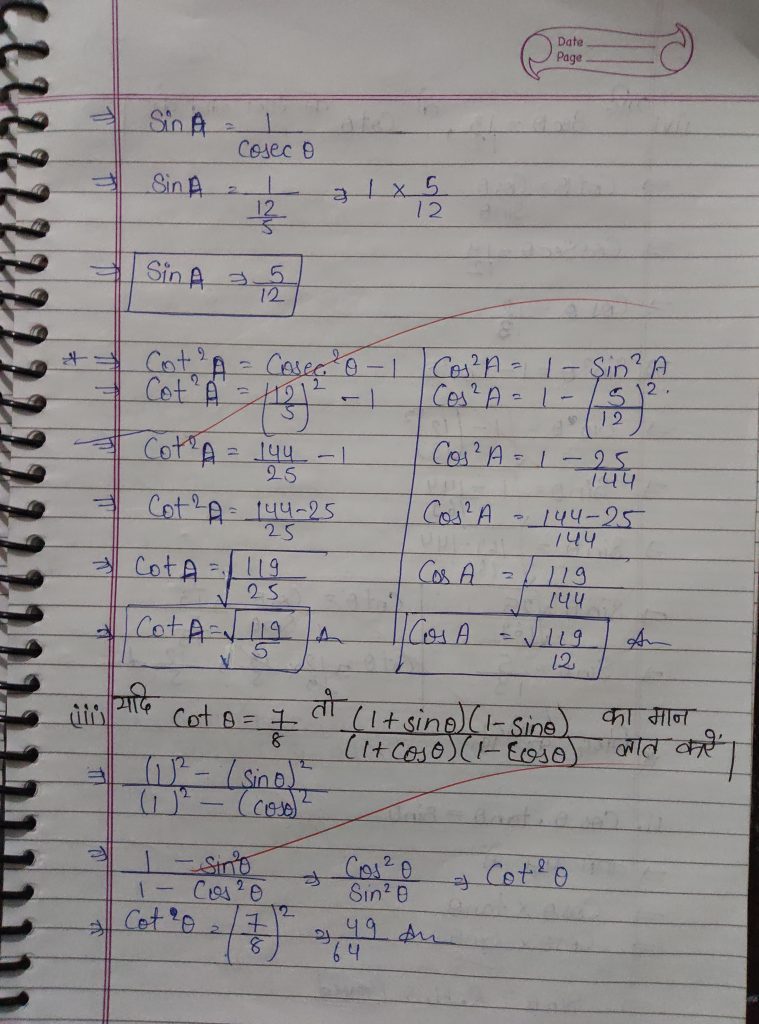 Date
Page
⇒ Sin A = 1/Cosec θ
⇒ Sin A = 1/(12/5) ⇒ 1 × 5/12
⇒ Sin A ⇒ 5/12
* ⇒ Cot²A = Cosec²θ − 1
⇒ Cot²A = (12/5)² − 1
⇒ Cot²A = 144/25 − 1
⇒ Cot²A = 144−25/25
⇒ Cot A = √119/25
⇒ Cot A = √119/5 An
Cos²A = 1 − Sin²A
Cos²A = 1 − (5/12)².
Cos²A = 1 − 25/144
Cos²A = 144−25/144
Cos A = √119/144
Cos A = √119/12 An
(iii) यदि Cot θ = 7/8 तो (1+sinθ)(1−Sinθ)/(1+Cosθ)(1−Cosθ) का मान
ज्ञात करें।
⇒ (1)² − (Sinθ)²/(1)² − (Cosθ)²
⇒ 1 − Sin²θ/1 − Cos²θ ⇒ Cos²θ/Sin²θ ⇒ Cot²θ
⇒ Cot²θ = (7/8)² ⇒ 49/64 An